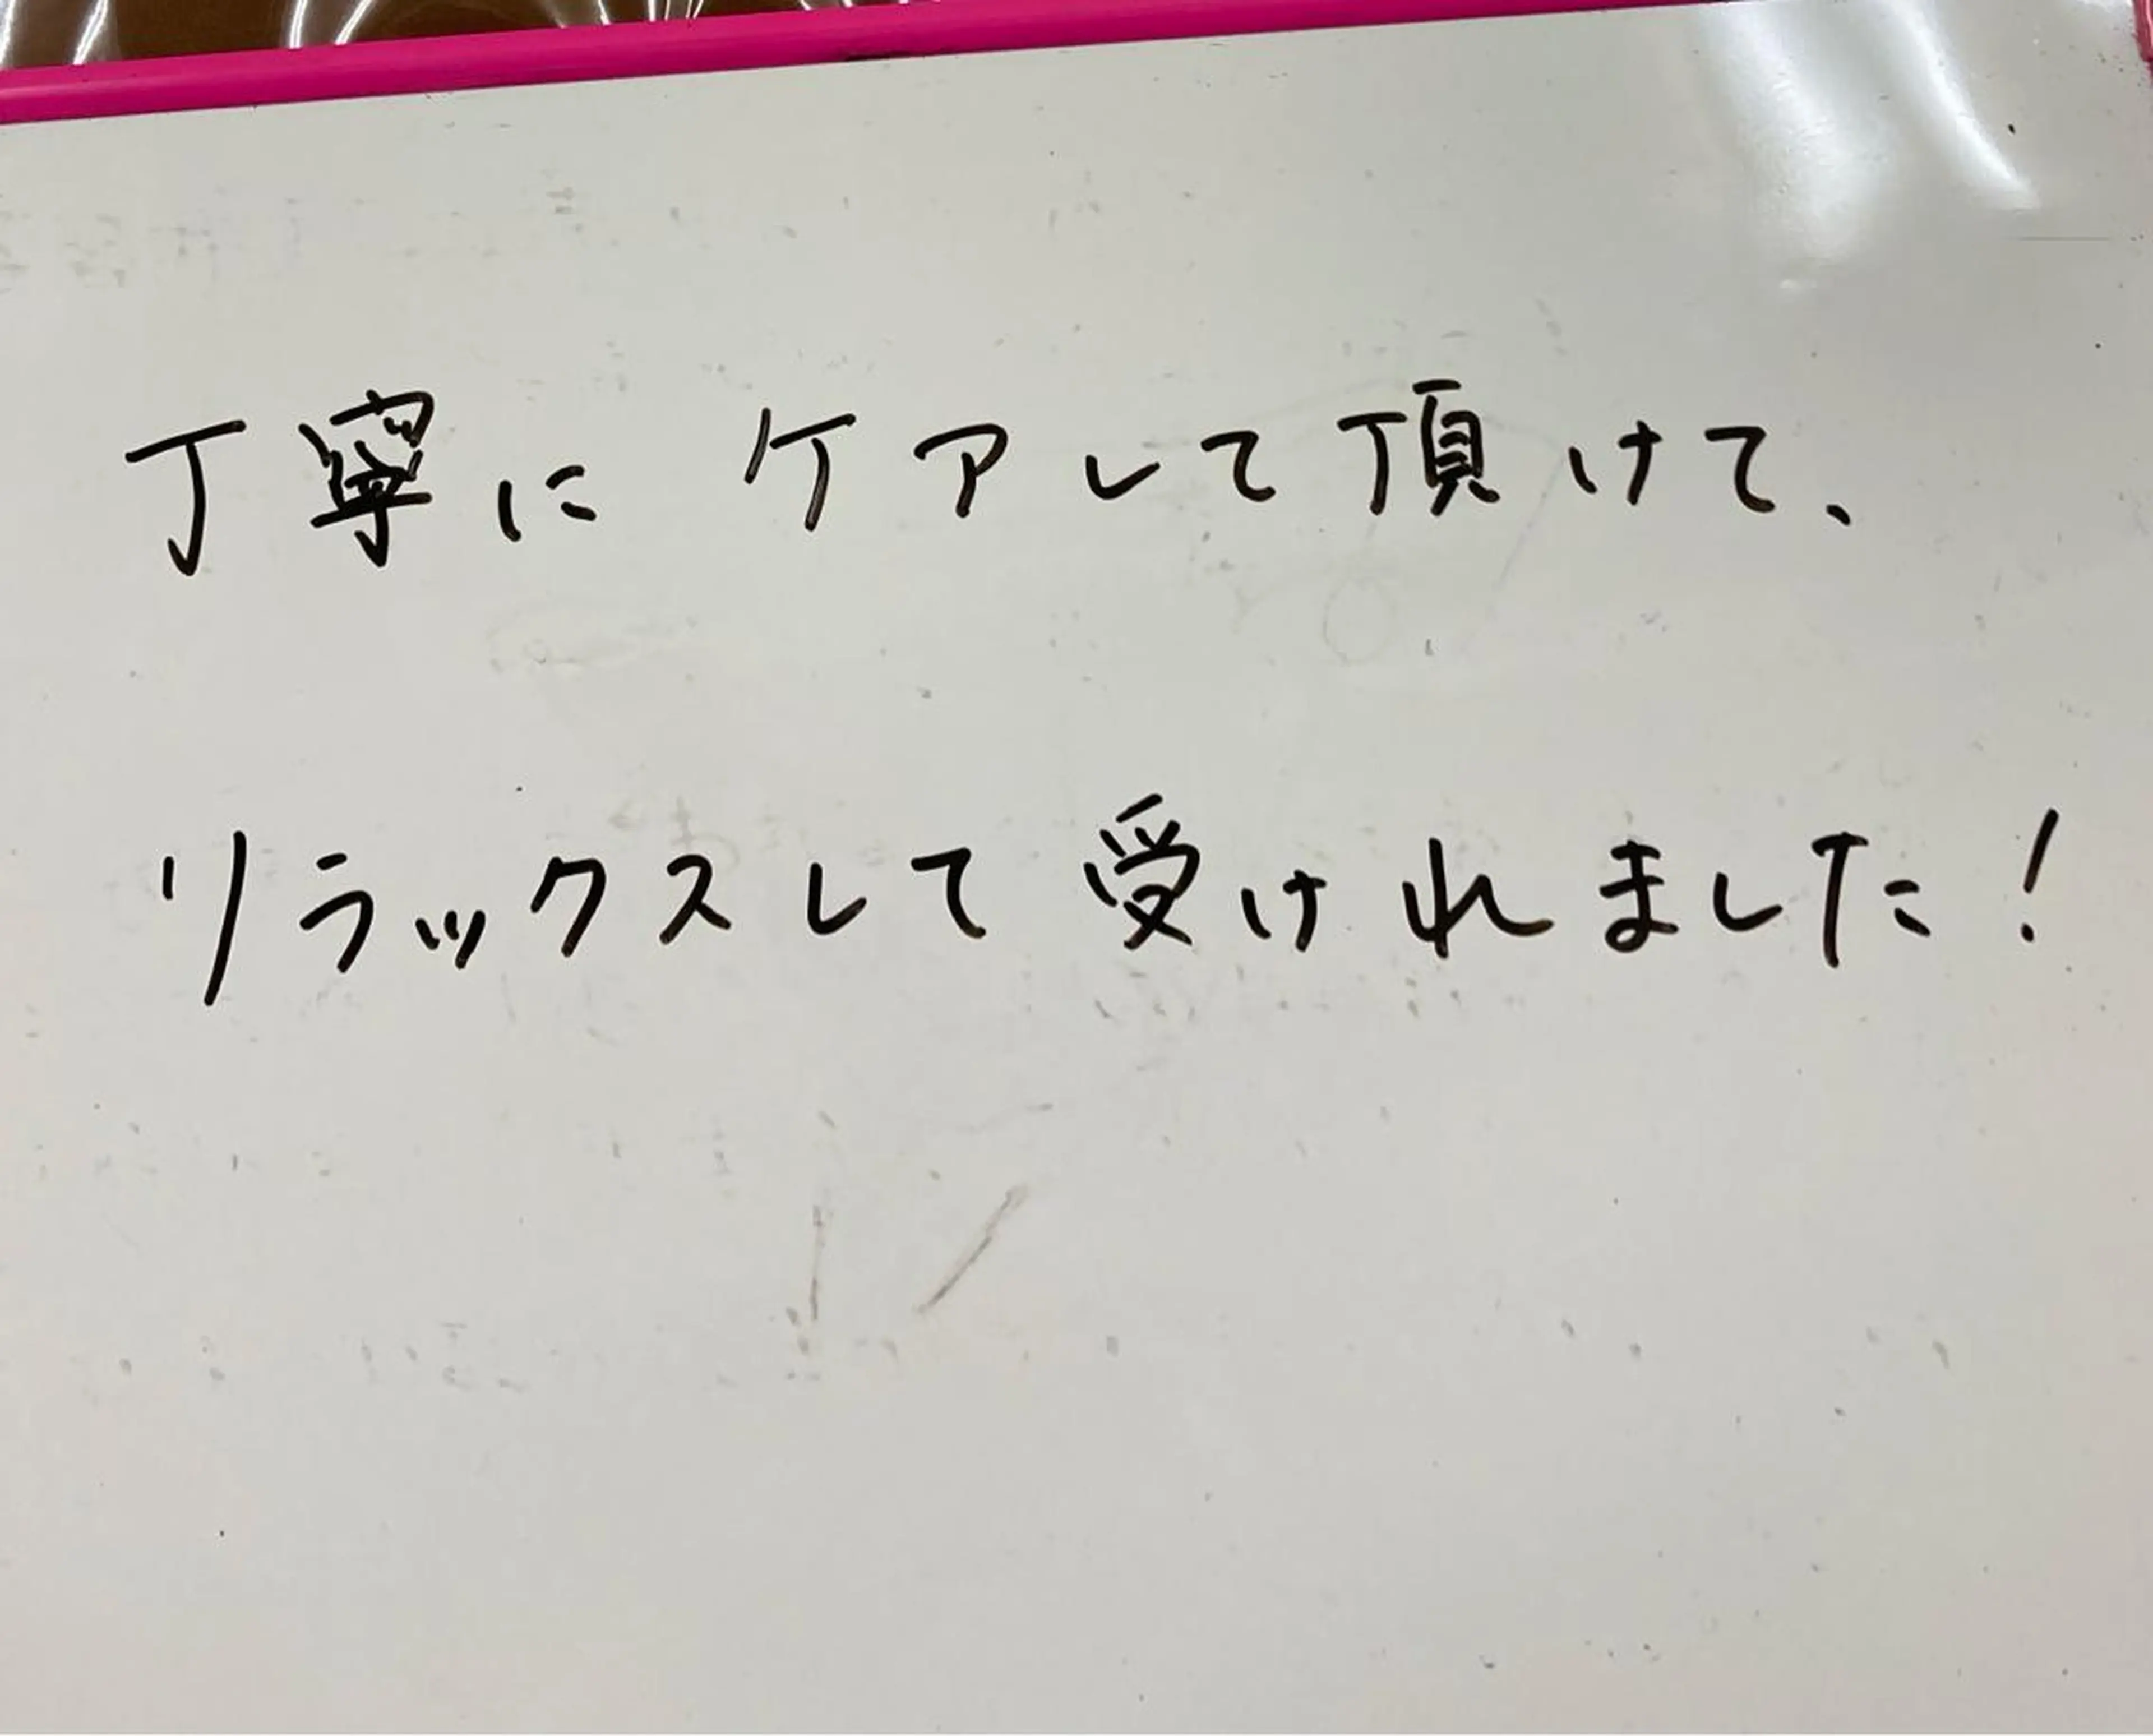 丁寧にケアして頂けて、
リラックスして受けれました!